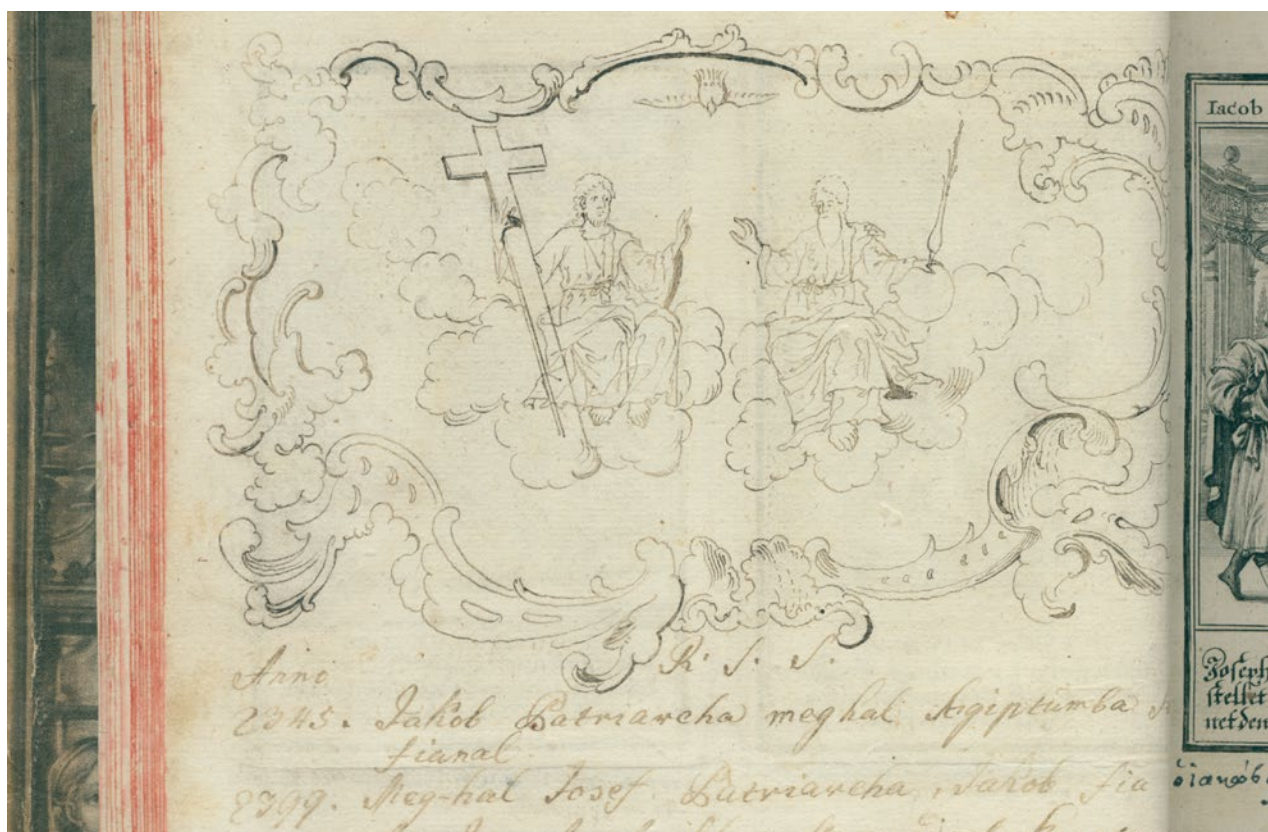 R. S. S.
Anno
2345. Jakob Patriarcha meghal Aegiptumba
fianal
2399. Meg-hal Josef Patriarcha, Jakob fia
Iacob
Joseph
stellet
net den